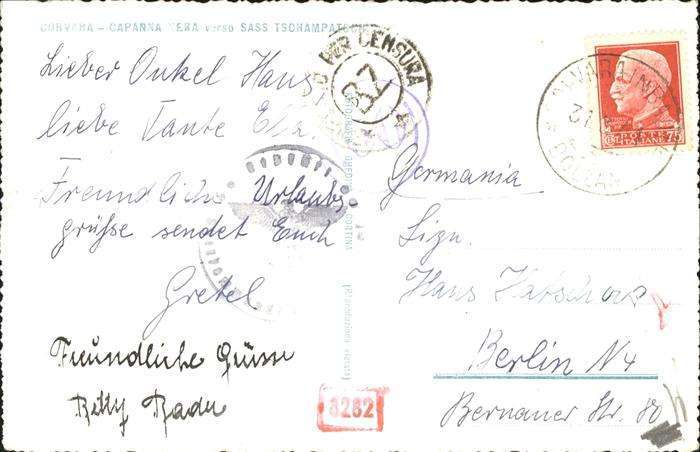 CORVARA - CAPANNA NERA verso SASS TSCHAMPATSCH
Lieber Onkel Hans
liebe Tante Ela.
Freundliche Urlaubs
grüße sendet Euch
Gretel
Freundliche Grüsse
Betty
PER CENSURA
POSTE ITALIANE 75
CORVARA IN
Germania
Sign.
Hans
Berlin N4
Bernauer Str. 80
3282